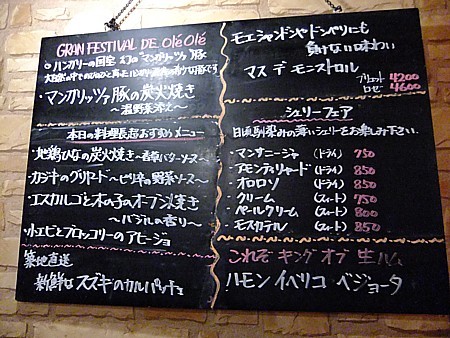 GRAN FESTIVAL DE Olé Olé
ハンガリーの国宝 幻の"マンガリッツァ"豚
・マンガリッツァ豚の炭火焼き
～温野菜添え～
本日の料理長おすすめメニュー
・地鶏ひなの炭火焼き～香草バターソース～
・カジキのグリヤード～ピリ辛の野菜ソース～
・エスカルゴと木の子のオーブン焼き
～バジルの香り～
・小エビとブロッコリーのアヒージョ
築地直送
新鮮なスズキのカルパッチョ
モエシャンドンやドンペリにも
負けない味わい
マス デ モニストロル
ブリュット 4200
ロゼ 4600
シェリーフェア
日頃馴染みの薄いシェリーをお楽しみ下さい。
・マンサニージャ (ドライ) 750
・アモンティリャード (ドライ) 850
・オロロソ (ドライ) 850
・クリーム (スィート) 750
・ペールクリーム (スィート) 800
・モスカテル (スィート) 850
これぞ キング オブ 生ハム
ハモン イベリコ ベジョータ